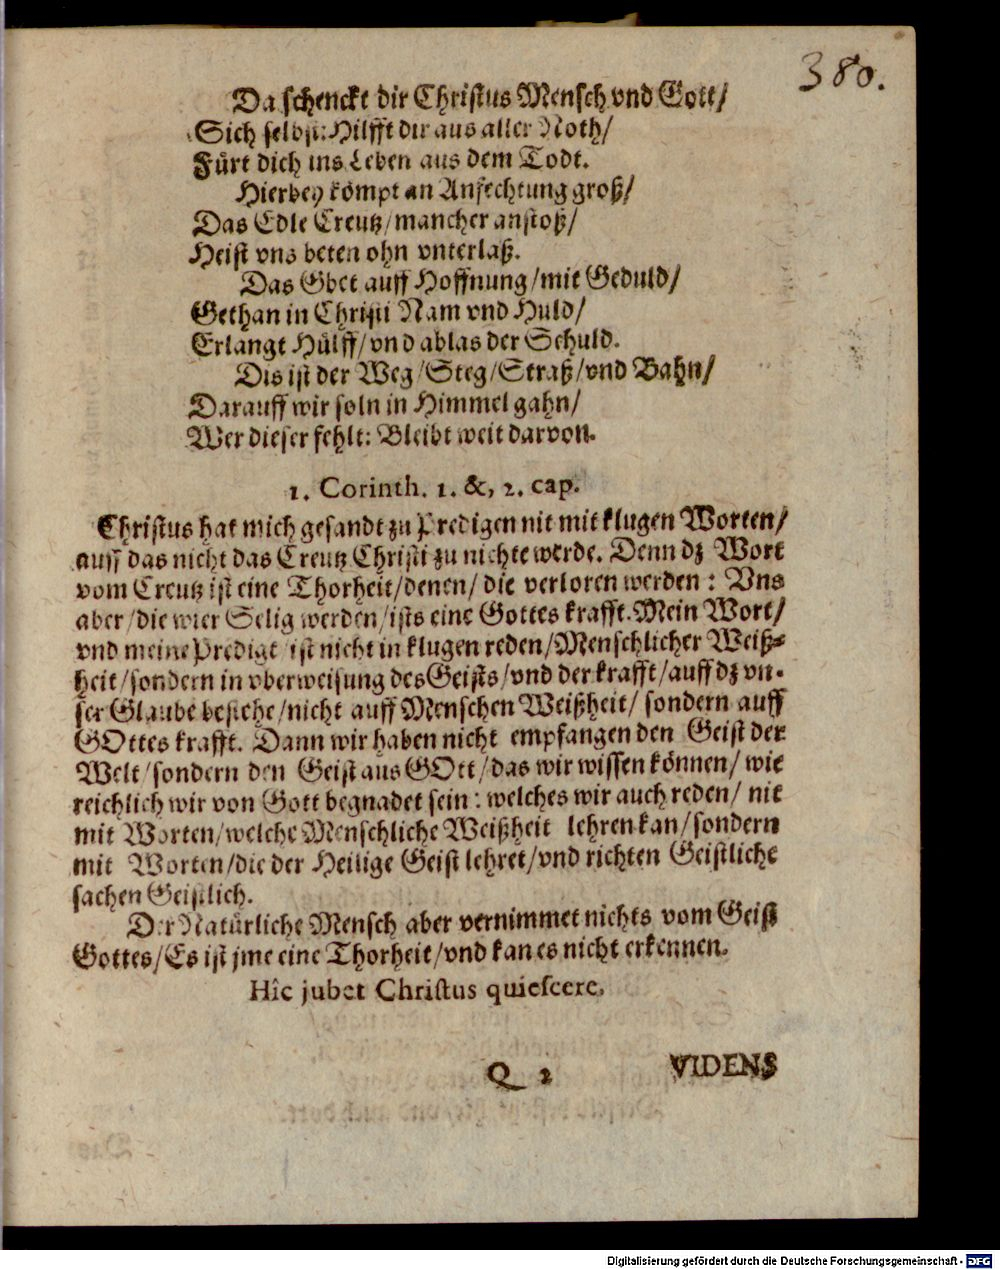 380.
Da schenckt dir Christus Mensch vnd Gott/
Sich selbst: Hilfft dir aus aller Noth/
Fürt dich ins Leben aus dem Todt.
Hierbey kömpt an Anfechtung groß/
Das Edle Creutz/mancher anstoß/
Heist vns beten ohn vnterlaß.
Das Gbet auff Hoffnung/mit Geduld/
Gethan in Christi Nam vnd Huld/
Erlangt Hülff/vnd ablas der Schuld.
Dis ist der Weg/Steg/Straß/vnd Bahn/
Darauff wir soln in Himmel gahn/
Wer dieser fehlt: Bleibt weit darvon.
1. Corinth. 1. &, 2. cap.
Christus hat mich gesandt zu Predigen nit mit klugen Worten/
auff das nicht das Creutz Christi zu nichte werde. Denn dz Wort
vom Creutz ist eine Thorheit/denen/die verloren werden: Vns
aber/die wier Selig werden/ists eine Gottes krafft. Mein Wort/
vnd meine Predigt ist nicht in klugen reden/Menschlicher Weiß-
heit/sondern in vberweisung des Geists/vnd der krafft/auff dz vn-
ser Glaube bestehe/nicht auff Menschen Weißheit/sondern auff
GOttes krafft. Dann wir haben nicht empfangen den Geist der
Welt/sondern den Geist aus GOtt/das wir wissen können/wie
reichlich wir von Gott begnadet sein: welches wir auch reden/nit
mit Worten/welche Menschliche Weißheit lehren kan/sondern
mit Worten/die der Heilige Geist lehret/vnd richten Geistliche
sachen Geistlich.
Der Natürliche Mensch aber vernimmet nichts vom Geist
Gottes/Es ist jme eine Thorheit/vnd kan es nicht erkennen.
Hîc jubet Christus quiescere.
Q 2 VIDENS
Digitalisierung gefördert durch die Deutsche Forschungsgemeinschaft - DFG